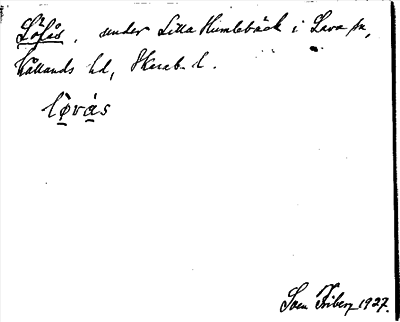 Löfås, under Lilla Humlebäck i Lava sn,
Kållands hd, Skarab. l.
lø̱vа̱́s
Sven Friberg 1927.